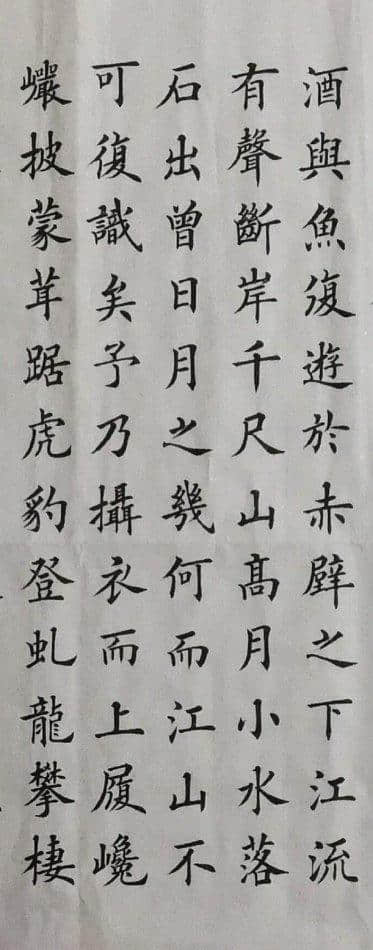 酒與魚復遊於赤壁之下江流
有聲斷岸千尺山高月小水落
石出曾日月之幾何而江山不
可復識矣予乃攝衣而上履巉
巖披蒙茸踞虎豹登虬龍攀棲